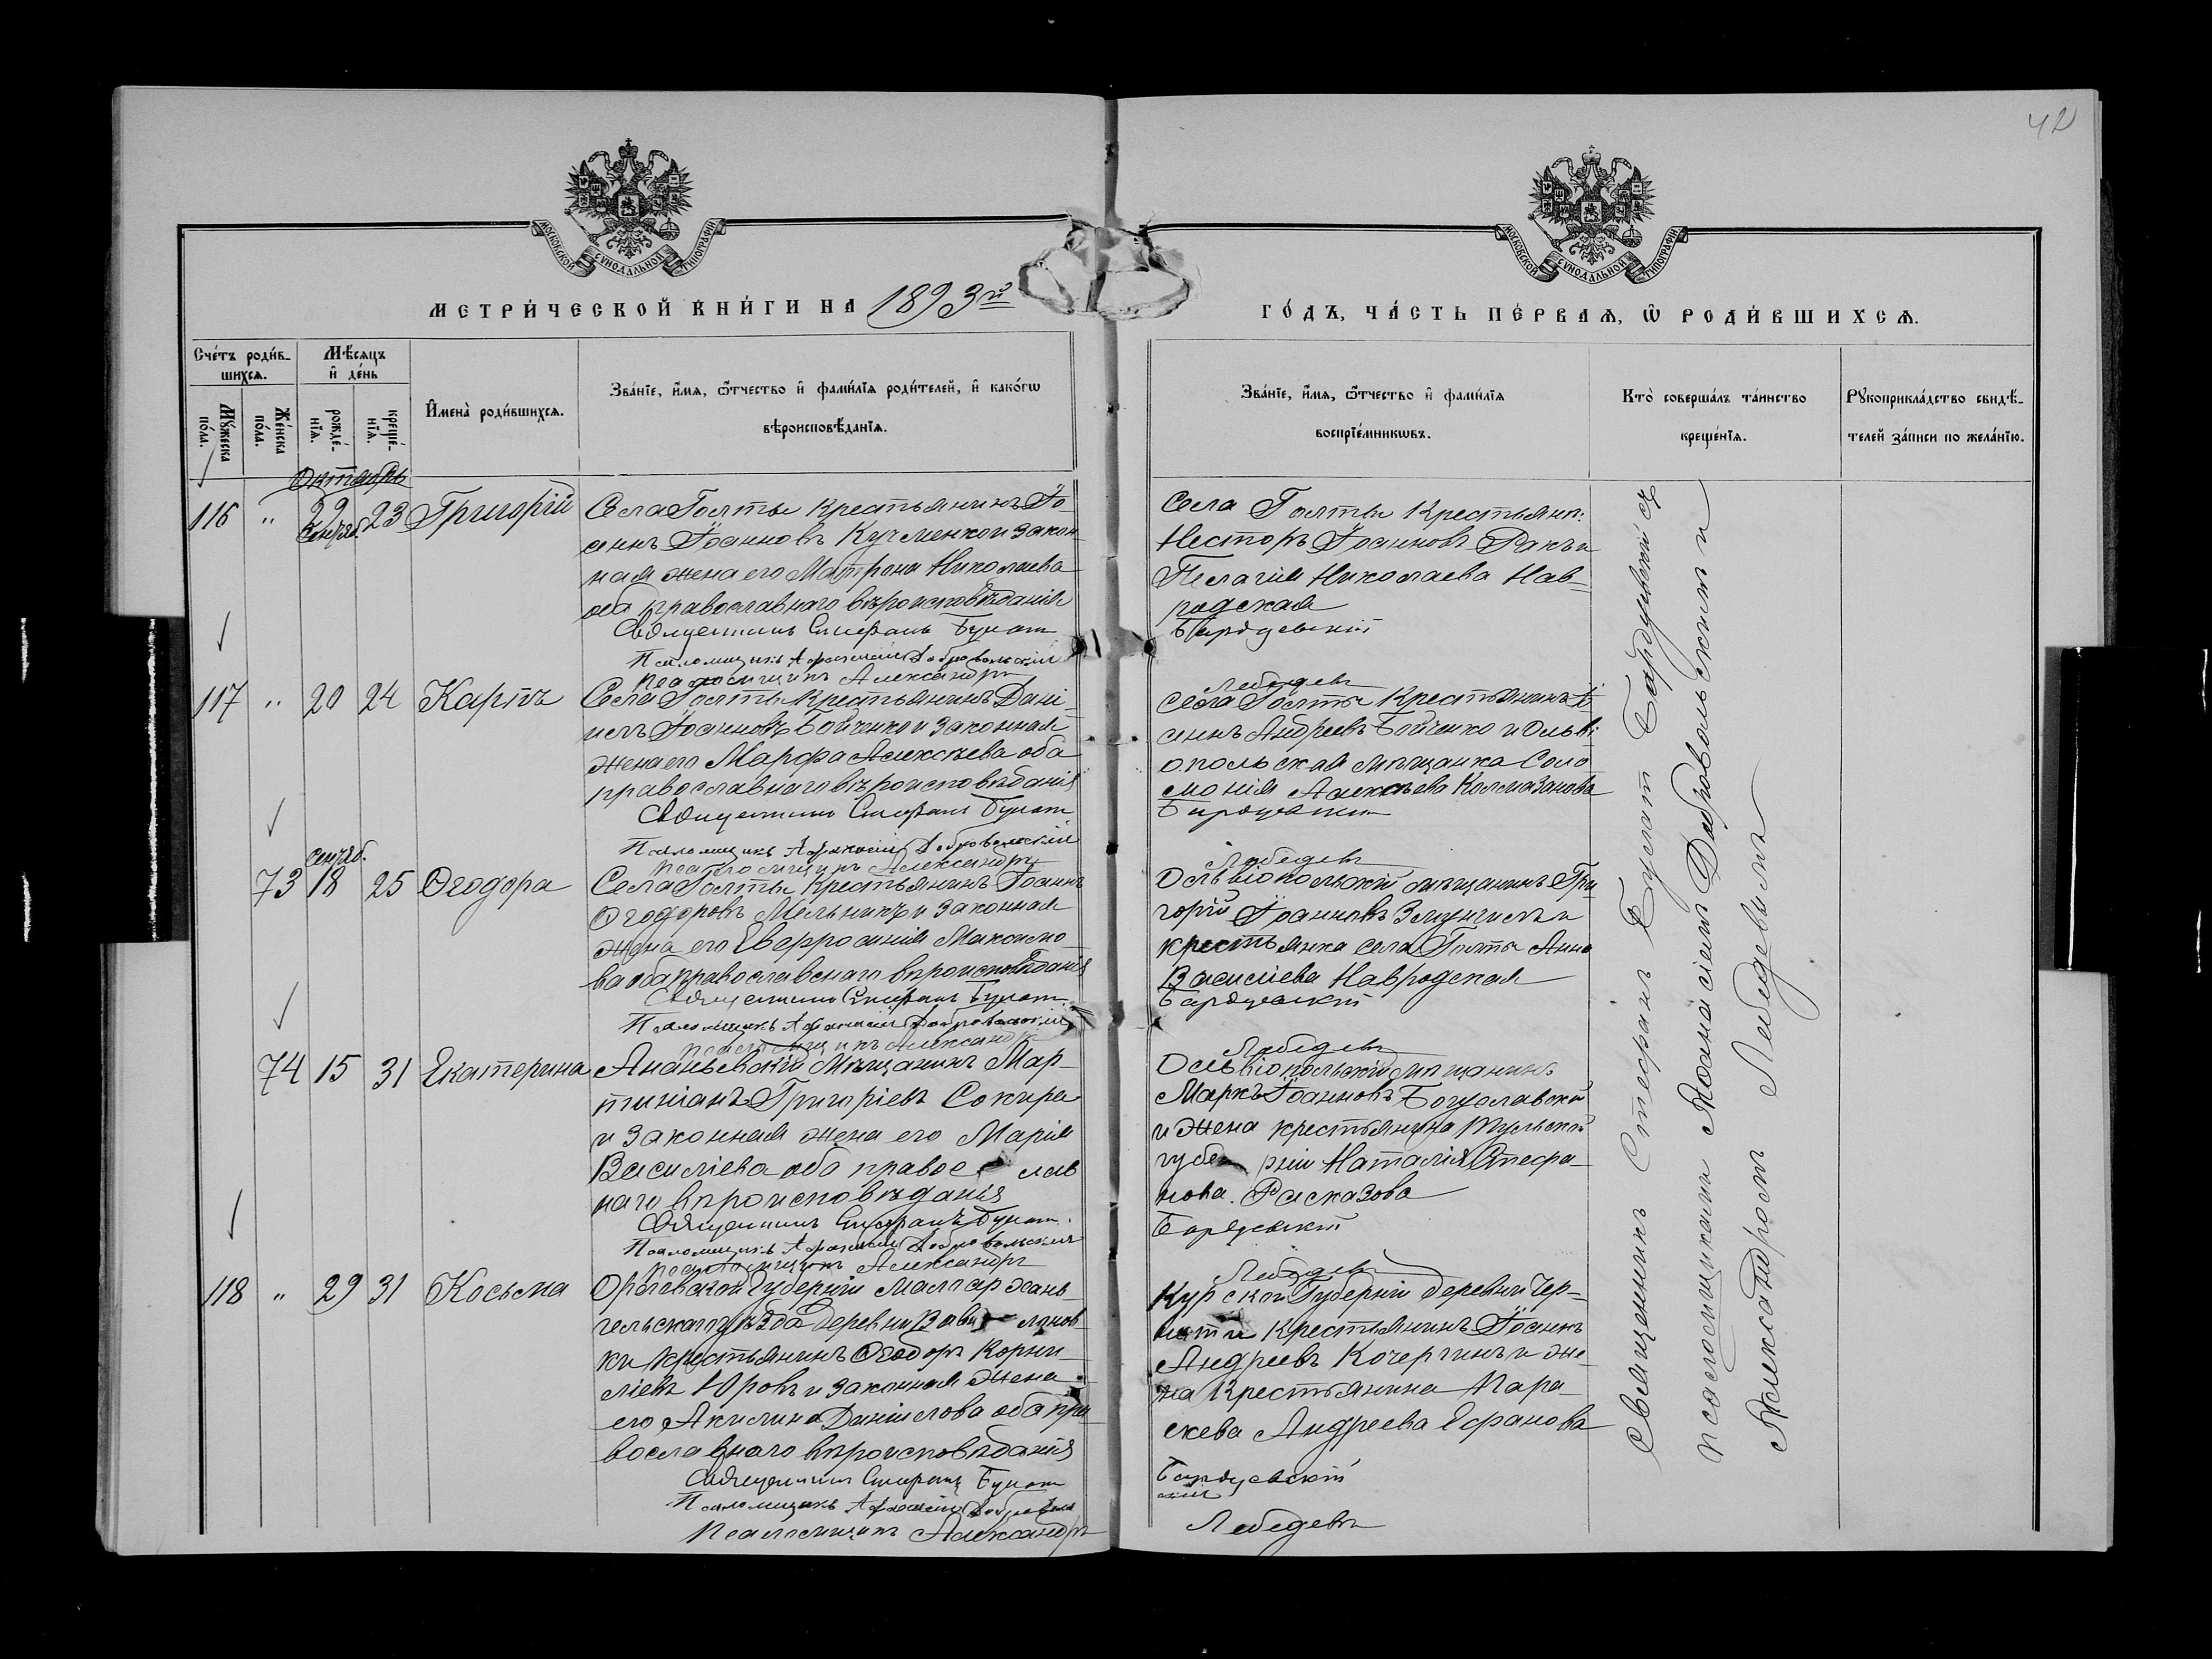 42
МОСКОВСКОЙ СѴНОДАЛЬНОЙ ТИПОГРАФІИ
МОСКОВСКОЙ СѴНОДАЛЬНОЙ ТИПОГРАФІИ
МЕТРИ́ЧЕСКОЙ КНИ́ГИ НА 1893й
ГО́ДЪ, ЧА́СТЬ ПЕ́РВАѦ, Ѿ РОДИ́ВШИХСѦ.
Сче́тъ роди́в-
шихсѧ.
Мѣ́сѧцъ
и҆ де́нь
Мꙋ́жеска
по́ла.
Же́нска
по́ла.
рожде́-
нїѧ.
креще́-
нїѧ.
И҆мена̀ роди́вшихсѧ.
Зва́нїе, и҆́мѧ, ѻ҆́тчество и҆ фами́лїѧ роди́телей, и҆ како́гѡ
вѣроисповѣ́данїѧ.
Зва́нїе, и҆́мѧ, ѻ҆́тчество и҆ фами́лїѧ
воспрїе́мникѡвъ.
Кто̀ соверша́лъ та́инство
креще́нїѧ.
Рꙋкоприкла́дство свидѣ́-
телей за́писи по жела́нїю.
Октябрь
116 " 22 23 Григорій
Сентяб.
Села Голты крестьянинъ Іо-
аннъ Іоанновъ Кучменко и закон
ная жена его Матрона Николаева
оба православнаго вѣроисповѣданія
Священникъ Стефанъ Булат
Псаломщикъ Афанасій Добровольскій
Псаломщикъ Александръ
Села Голты крестьяни:
Несторъ Іоанновъ Ракъ и
Пелагія Николаева Нав-
родская
Бардуевскій
Лебедевъ
117 " 20 24 Карпъ
Села Голты крестьянинъ Дані-
илъ Іоанновъ Бойченко и законная
жена его Марфа Алексѣева оба
православнаго вѣроисповѣданія
Священникъ Стефанъ Булат
Псаломщикъ Афанасій Добровольскій
Псаломщикъ Александръ
Села Голты крестьянинъ Іо
аннъ Андреевъ Бойченко и Ольві
опольская мѣщанка Соло
монія Алексѣева Колмазанова
Бардуевскій
Лебедевъ
сентяб.
73 18 25 Ѳеодора
Села Голты крестьянинъ Іоаннъ
Ѳеодоровъ Мельникъ и законная
жена его Евфросинія Максимо
ва оба православнаго вѣроисповѣданія
Священникъ Стефанъ Булат
Псаломщикъ Афанасій Добровольскій
Псаломщикъ Александръ
Ольвіопольскій мѣщанинъ Гри
горій Іоанновъ и
крестьянка села Голты Анна
Василіева Навродская
Бардуевскій
Лебедевъ
74 15 31 Екатерина
Ананьевскій Мѣщанинъ Мар-
тиніанъ Григоріевъ Сокира
и законная жена его Марія
Василіева оба правос лав
наго вѣроисповѣданія
Священникъ Стефанъ Булат
Псаломщикъ Афанасій Добровольскій
Псаломщикъ Александръ
Ольвіопольскій мѣщанинъ
Маркъ Іоанновъ Богуславскій
и жена крестьянина Тульской
губе рніи Наталія Стефа-
нова Расказова
Бардуевскій
Лебедевъ
118 " 29 31 Косьма
Орловской Губерніи Малоархань
гельскаго уѣзда деревни
ки крестьянинъ Ѳеодоръ Корни-
ліевъ Юровъ и законная жена
его Акилина Даніилова оба пра
вославнаго вѣроисповѣданія
Священникъ Стефанъ Булат
Псаломщикъ Афанасій Доброволь
Псаломщикъ Александръ
Курской Губерніи деревни Чер-
крестьянинъ Іоаннъ
Андреевъ Кочергинъ и же-
на крестьянина Пара-
скева Андреева Ефанова
Бардуевскій
скій
Лебедевъ
Священникъ Стефанъ Булат Бардуевскій съ
псаломщиками Аѳанасіемъ Добровольскимъ и
Александромъ Лебедевымъ